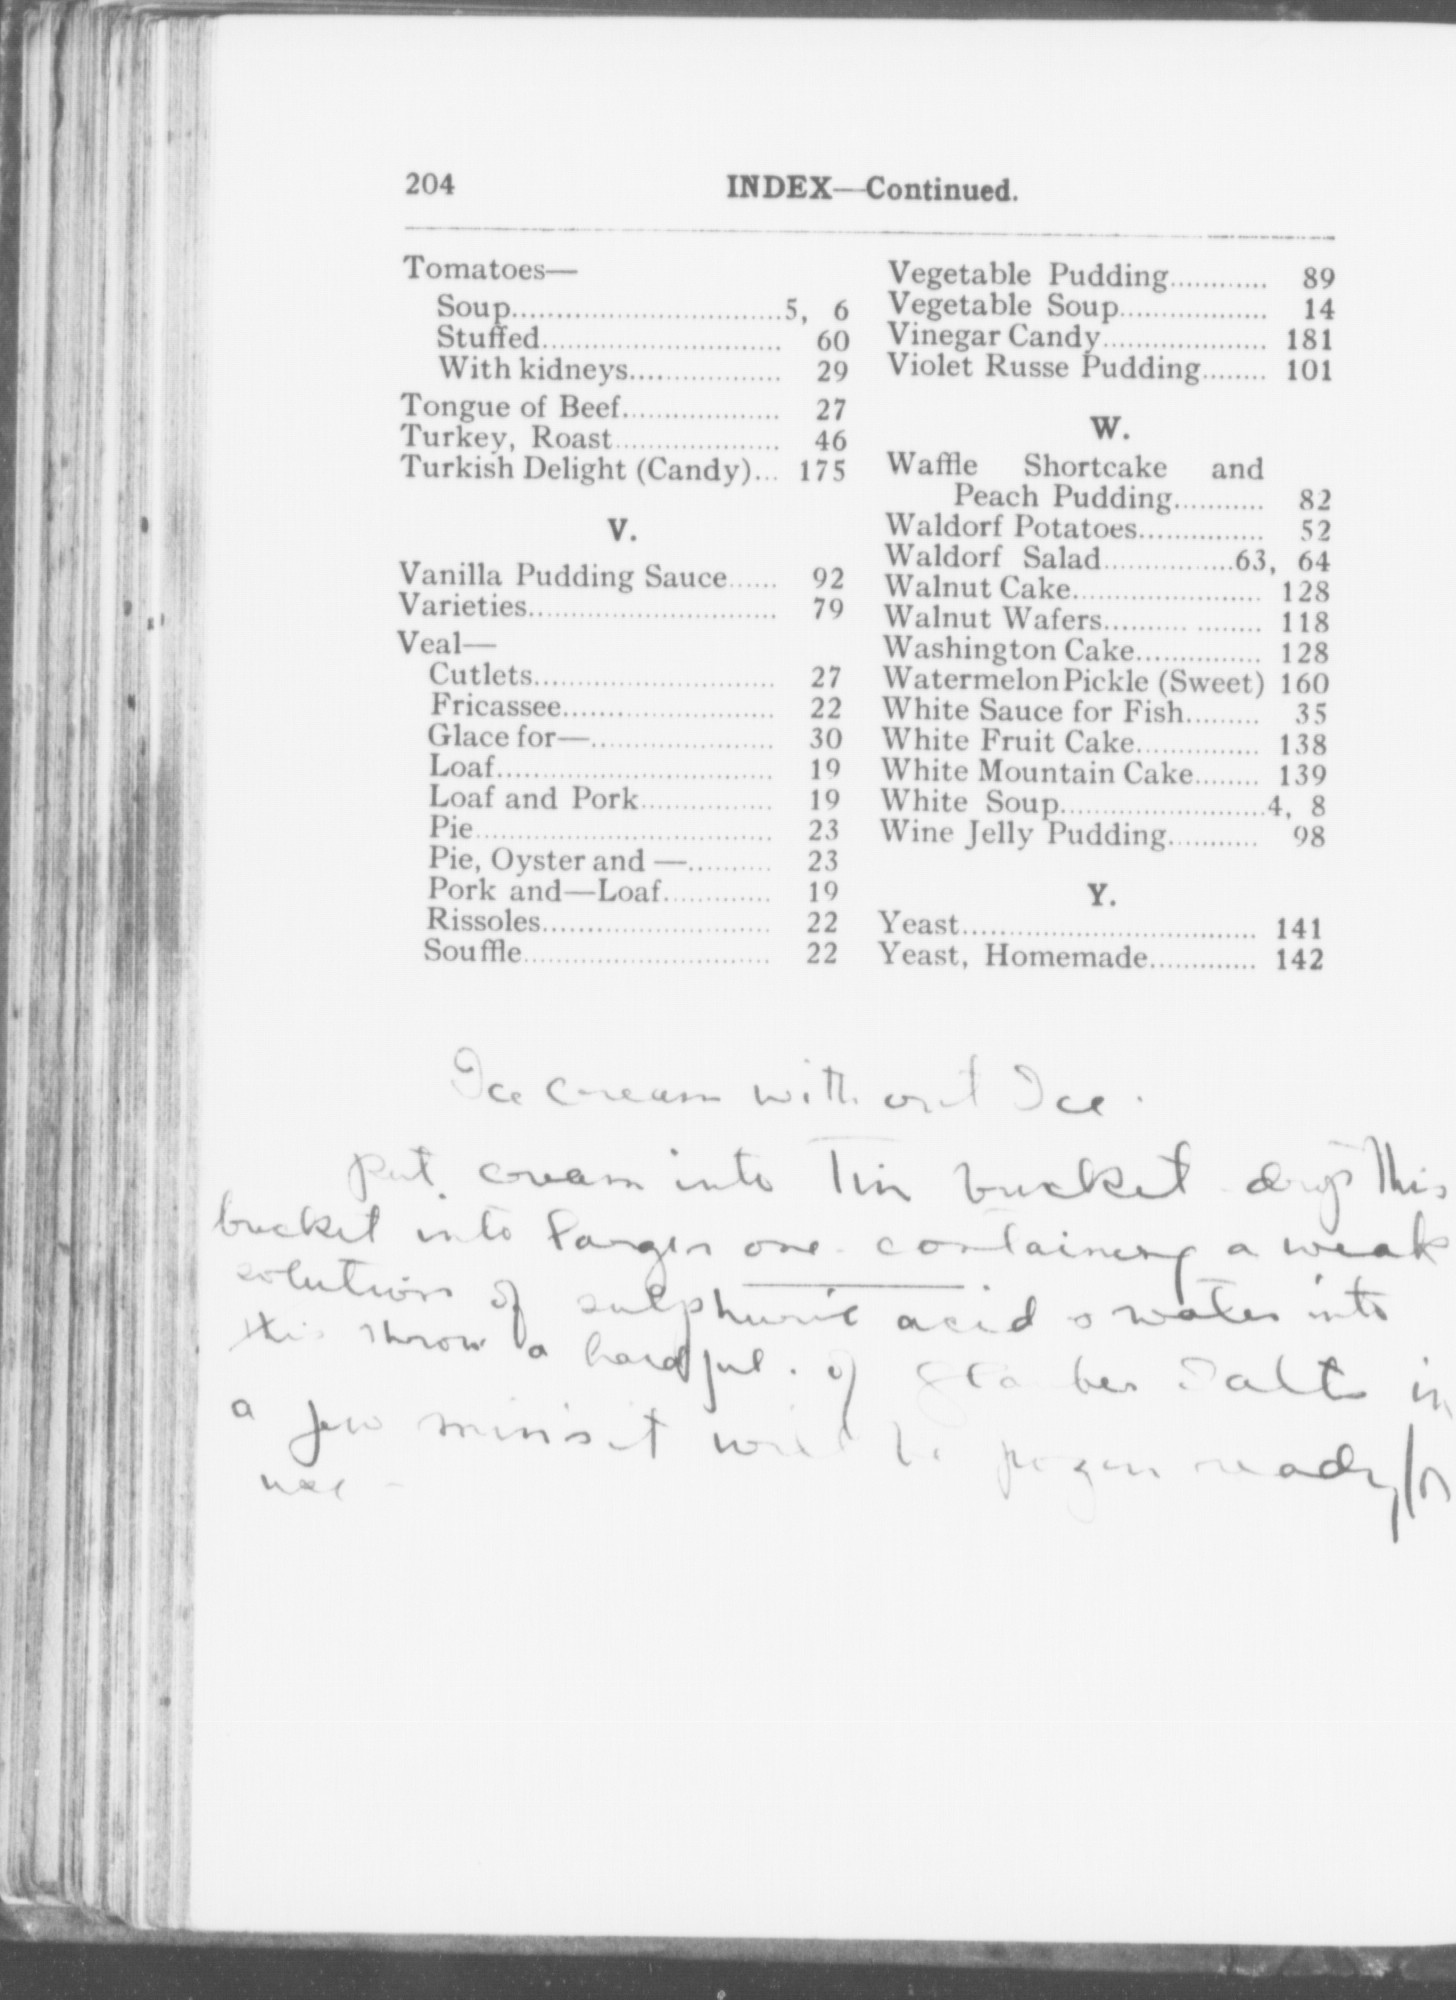 204
INDEX—Continued.
Tomatoes—
Soup..............................5, 6
Stuffed........................... 60
With kidneys................. 29
Tongue of Beef.................. 27
Turkey, Roast................... 46
Turkish Delight (Candy)... 175
V.
Vanilla Pudding Sauce...... 92
Varieties............................ 79
Veal—
Cutlets........................... 27
Fricassee........................ 22
Glace for—..................... 30
Loaf............................... 19
Loaf and Pork............... 19
Pie................................. 23
Pie, Oyster and —.......... 23
Pork and—Loaf............. 19
Rissoles.......................... 22
Souffle............................ 22
Vegetable Pudding............ 89
Vegetable Soup.................. 14
Vinegar Candy.................... 181
Violet Russe Pudding........ 101
W.
Waffle Shortcake and
Peach Pudding........... 82
Waldorf Potatoes............... 52
Waldorf Salad................63, 64
Walnut Cake....................... 128
Walnut Wafers.......... ........ 118
Washington Cake............... 128
Watermelon Pickle (Sweet) 160
White Sauce for Fish......... 35
White Fruit Cake............... 138
White Mountain Cake........ 139
White Soup..........................4, 8
Wine Jelly Pudding........... 98
Y.
Yeast................................... 141
Yeast, Homemade............. 142
Ice Cream without Ice.
put cream into Tin bucket drop this
bucket into larger one containing a weak
solution of sulphuric acid & water into
this throw a handful. of Glauber Salts in
a few mins it will be frozen ready for
use -